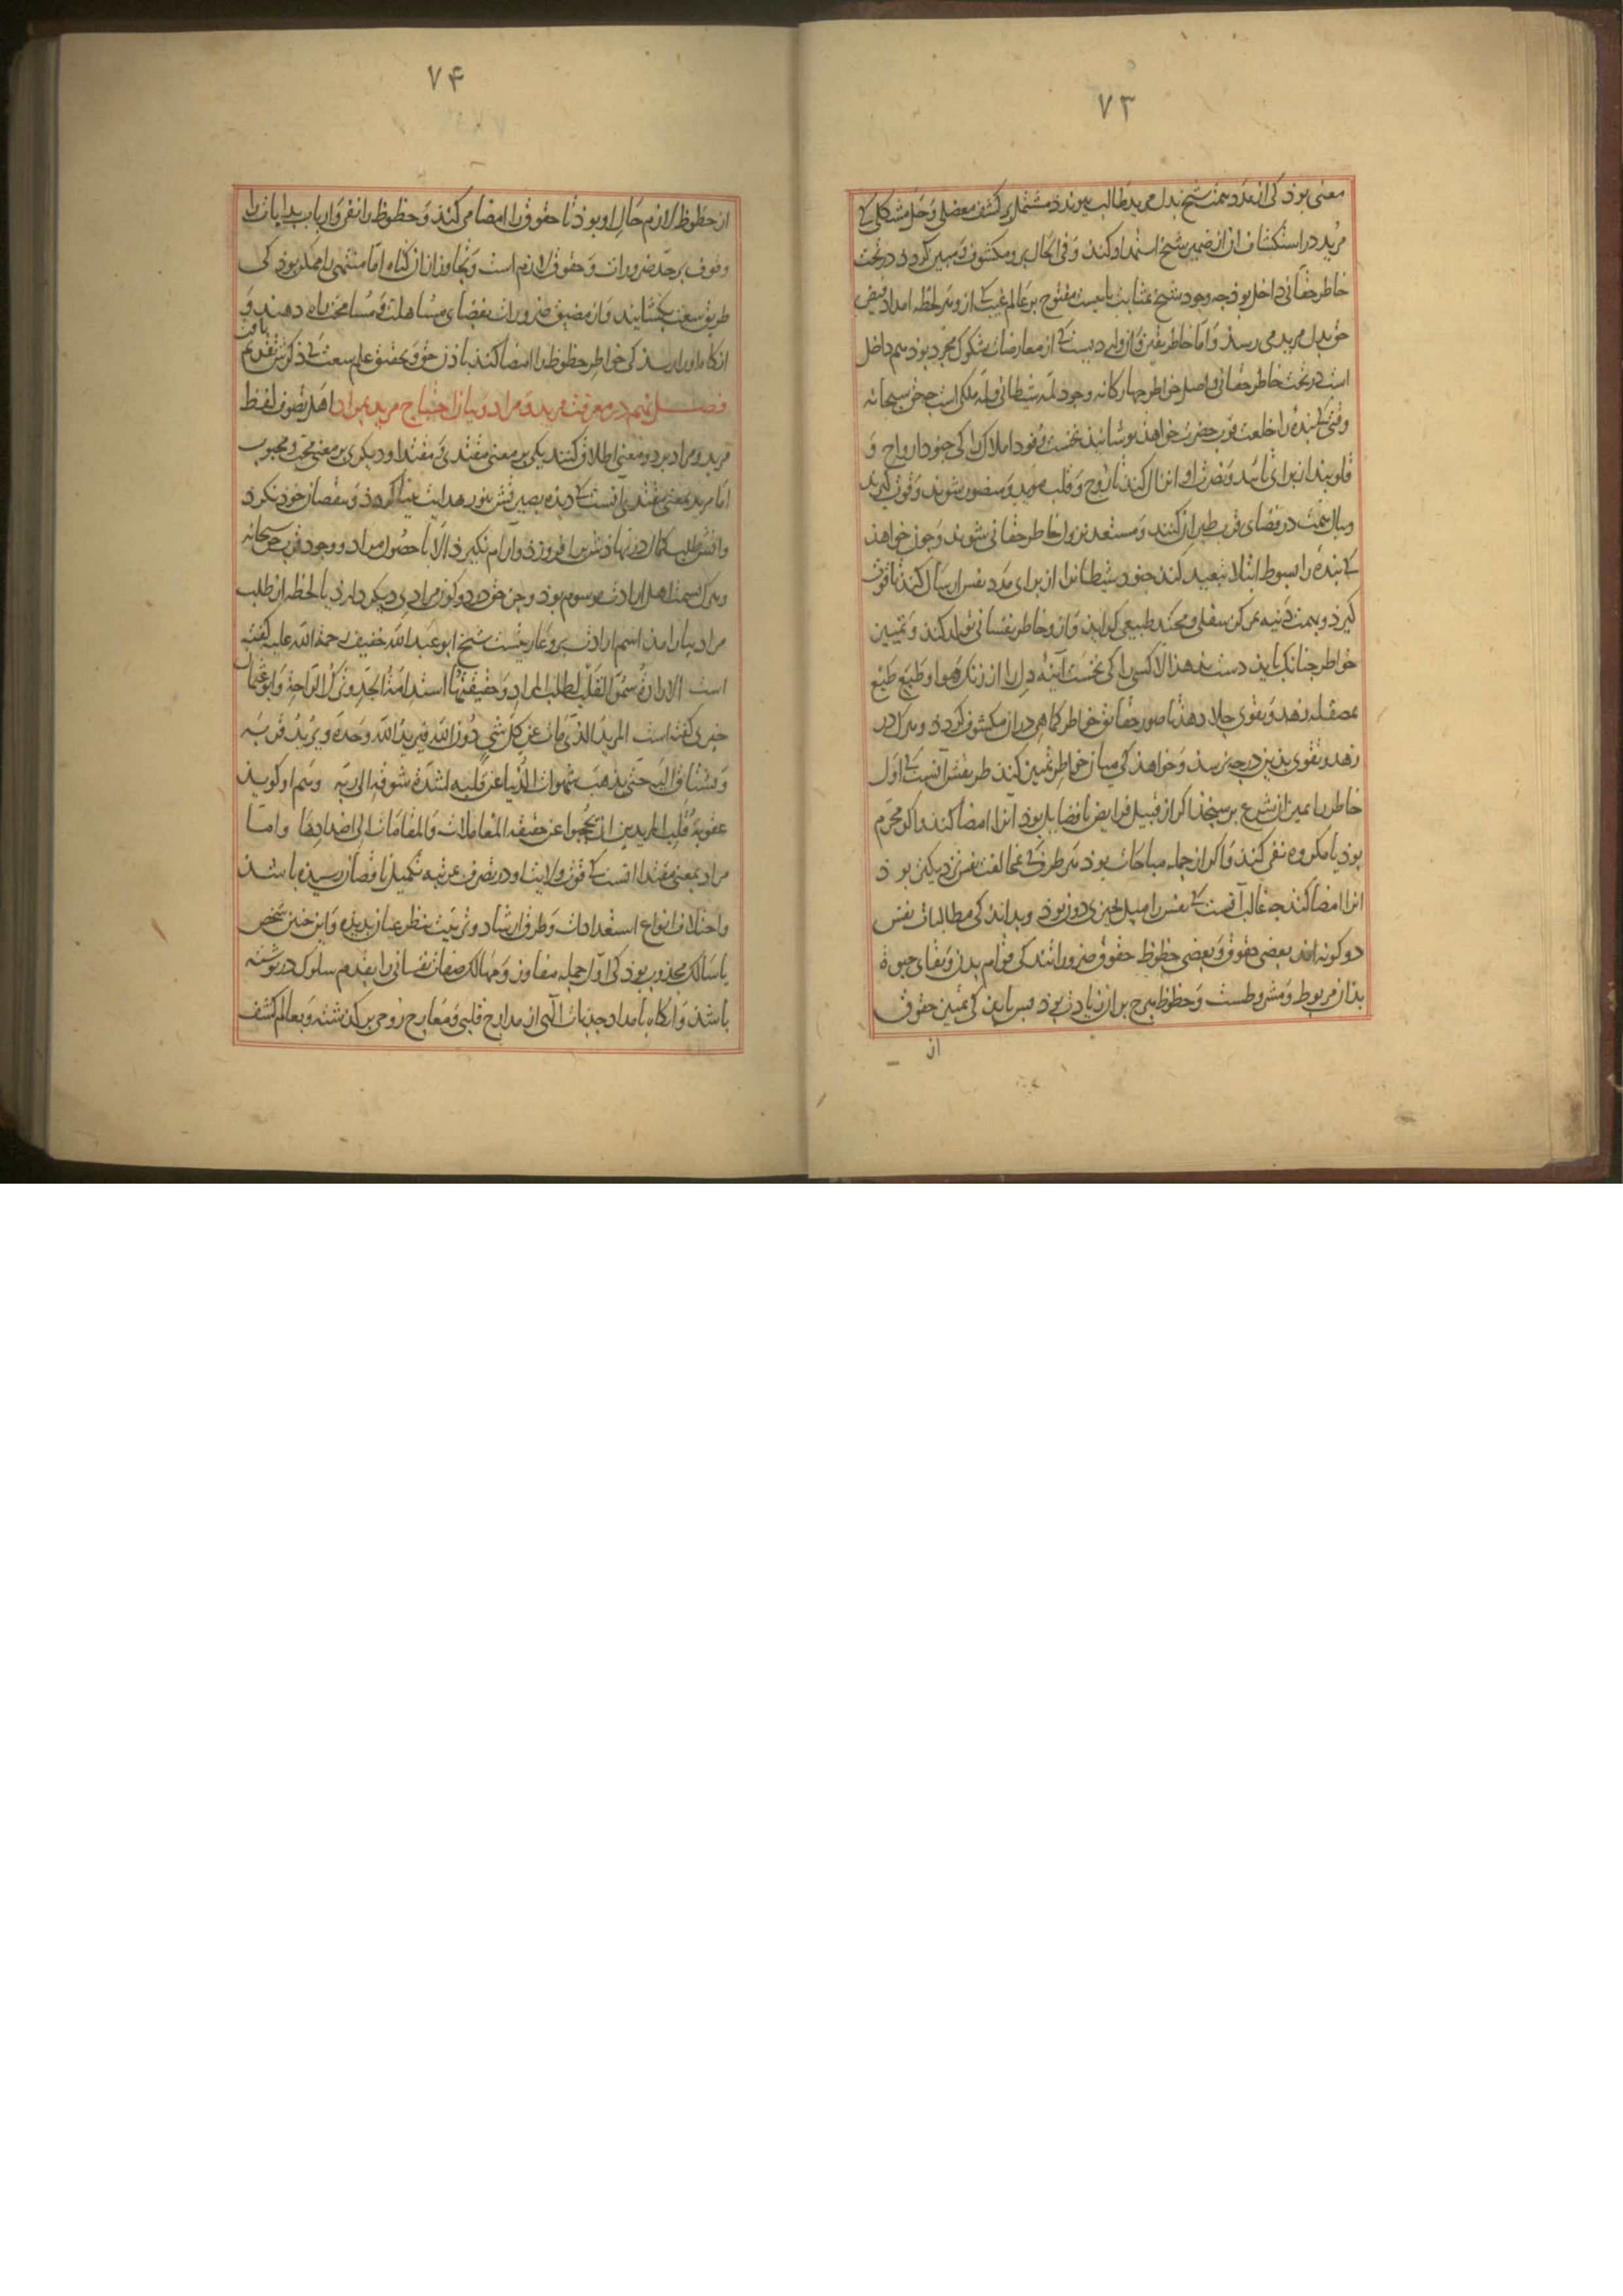 ٧٣
معنی بوذ کی از مدد همت شیخ بدل مرید طالب پیوندد مشتمل بر کشف معضلی و حل مشکلی کی
مرید در استکشاف آن از ضمیر شیخ استمداد کند و فی الحال برو مکشوف و مبین کردد در تحت
خاطر حقانی داخل بوذ چه وجود شیخ بمثابت بابیست مفتوح بر عالم غیب کی ازو هر لحظه امداد فیض
حق بدل مرید می رسد و اما خاطر یقین و آن واردیست کی از معارضات شکوک مجرد بوذ هم داخل
است در تحت خاطر حقانی و اصل خواطر چهارکانه وجود لمه شیطانی و لمه ملکی است چه حق سبحانه
وقتی کی بنده را خلعت قرب حضرت خواهذ پوشانیذ نخست وفود املاک را کی جنود ارواح و
قلوبند از برای تایید و نصرت او انزال کند تا روح و قلب موید و منصور شوند و قوت کیرند
و ببال همت در فضای قرب طیران کنند و مستعد نزول خاطر حقانی شوند و چون خواهذ
کی بنده را بسوط ابتلا تبعید کند جنود شیطانرا از برای مدد نفس ارسال کند تا قوت
کیرذ و بهمت دنیه بمرکز سفلی و محتد طبیعی کراید و ازو خاطر نفسانی تولد کند و تمییز
خواطر چنانک باید دست ندهد الا کسی را کی نخست آینه دل را از زنک هوا و طبع
بمصقله زهد و تقوی جلا دهذ تا صور حقایق خواطر کماهی در آن مکشوف کردد و هرک در
زهد و تقوی بذین درجه نرسد و خواهذ کی میان خواطر تمییز کند طریقش آنست کی اول
خاطر را بمیزان شرع بر سنجذ اکر از قبیل فرایض یا فضایل بوذ آنرا امضا کند و اکر محرم
بوذ یا مکروه نفی کند و اکر از جمله مباحات بوذ هر طرف کی بمخالفت نفس نزدیکتر بوذ
آنرا امضا کند چه غالب آنست کی نفس را میل بچیزی دون بوذ و بداند کی مطالبات نفس
دو کونه اند بعضی حقوق و بعضی حظوظ حقوق ضروراتند کی قوام بدن و بقای حیوة
بذان مربوط و مشروطست و حظوظ هرچ بر آن زیادت بوذ پس باید کی تمییز حقوق
از
٧۴
از حظوظ لازم حال او بوذ تا حقوق را امضا می کند و حظوظ را نفی و ارباب بدایات را
وقوف بر حد ضرورات و حقوق لازم است و تجاوز از آن کناه اما منتهی را ممکن بوذ کی
طریق سعت بکشایند و از مضیق ضرورات بفضای مساهلت و مسامحت راه دهند و
آنکاه او را رسد کی خواطر حظوظ را امضا کند باذن حق و تحقیق علم سعت کی ذکرش تقدیم یافت
فصل نهم در معرفت مرید و مراد و بیان احتیاج مرید بمراد اهل تصوف لفظ
مرید و مراد بر دو معنی اطلاق کنند یکی بر معنی مقتدی و مقتدا و دیکری بر معنی محب و محبوب
اما مرید بمعنی مقتدی آنست کی دیده بصیرتش بنور هدایت بینا کردد و بنقصان خود نکرد
و آتش طلب کمال در نهادش بر افروزد و آرام نکیرد الا بحصول مراد و وجود قرب حق سبحانه
و هرک بسمت اهل ارادت موسوم بوذ و جز حق در دو کون مرادی دیکر دارد یا لحظه از طلب
مراد بیارامد اسم ارادت برو عاریتست شیخ ابو عبد الله خفیف رحمة الله علیه کفته
است الارادة سمو القلب لطلب المراد و حقیقتها استدامة الجد و ترک الراحة و ابو عثمان
حیری کفته است المرید الذی مات عن کل شی دون الله فیرید الله وحده و یرید قربه
و یشتاق الیه حتی یذهب شهوات الدنیا عن قلبه لشدة شوقه الی ربه و هم او کوید
عقوبة قلب المریدین ان یحجبوا عن حقیقه المعاملات و المقامات الی اضدادها و اما
مراد بمعنی مقتدا آنست کی قوت ولایت او در تصرف بمرتبه تکمیل ناقصان رسیده باشد
و اختلاف انواع استعدادات و طرق ارشاد و تربیت بنظر عیان بدیده و این چنین شخص
یا سالک مجذوب بوذ کی اول جمله مفاوز و مهالک صفات نفسانی را بقدم سلوک در نوشته
باشد و آنکاه بامداد جذبات الهی از مدارج قلبی و معارج روحی بر کذشته و بعالم کشف